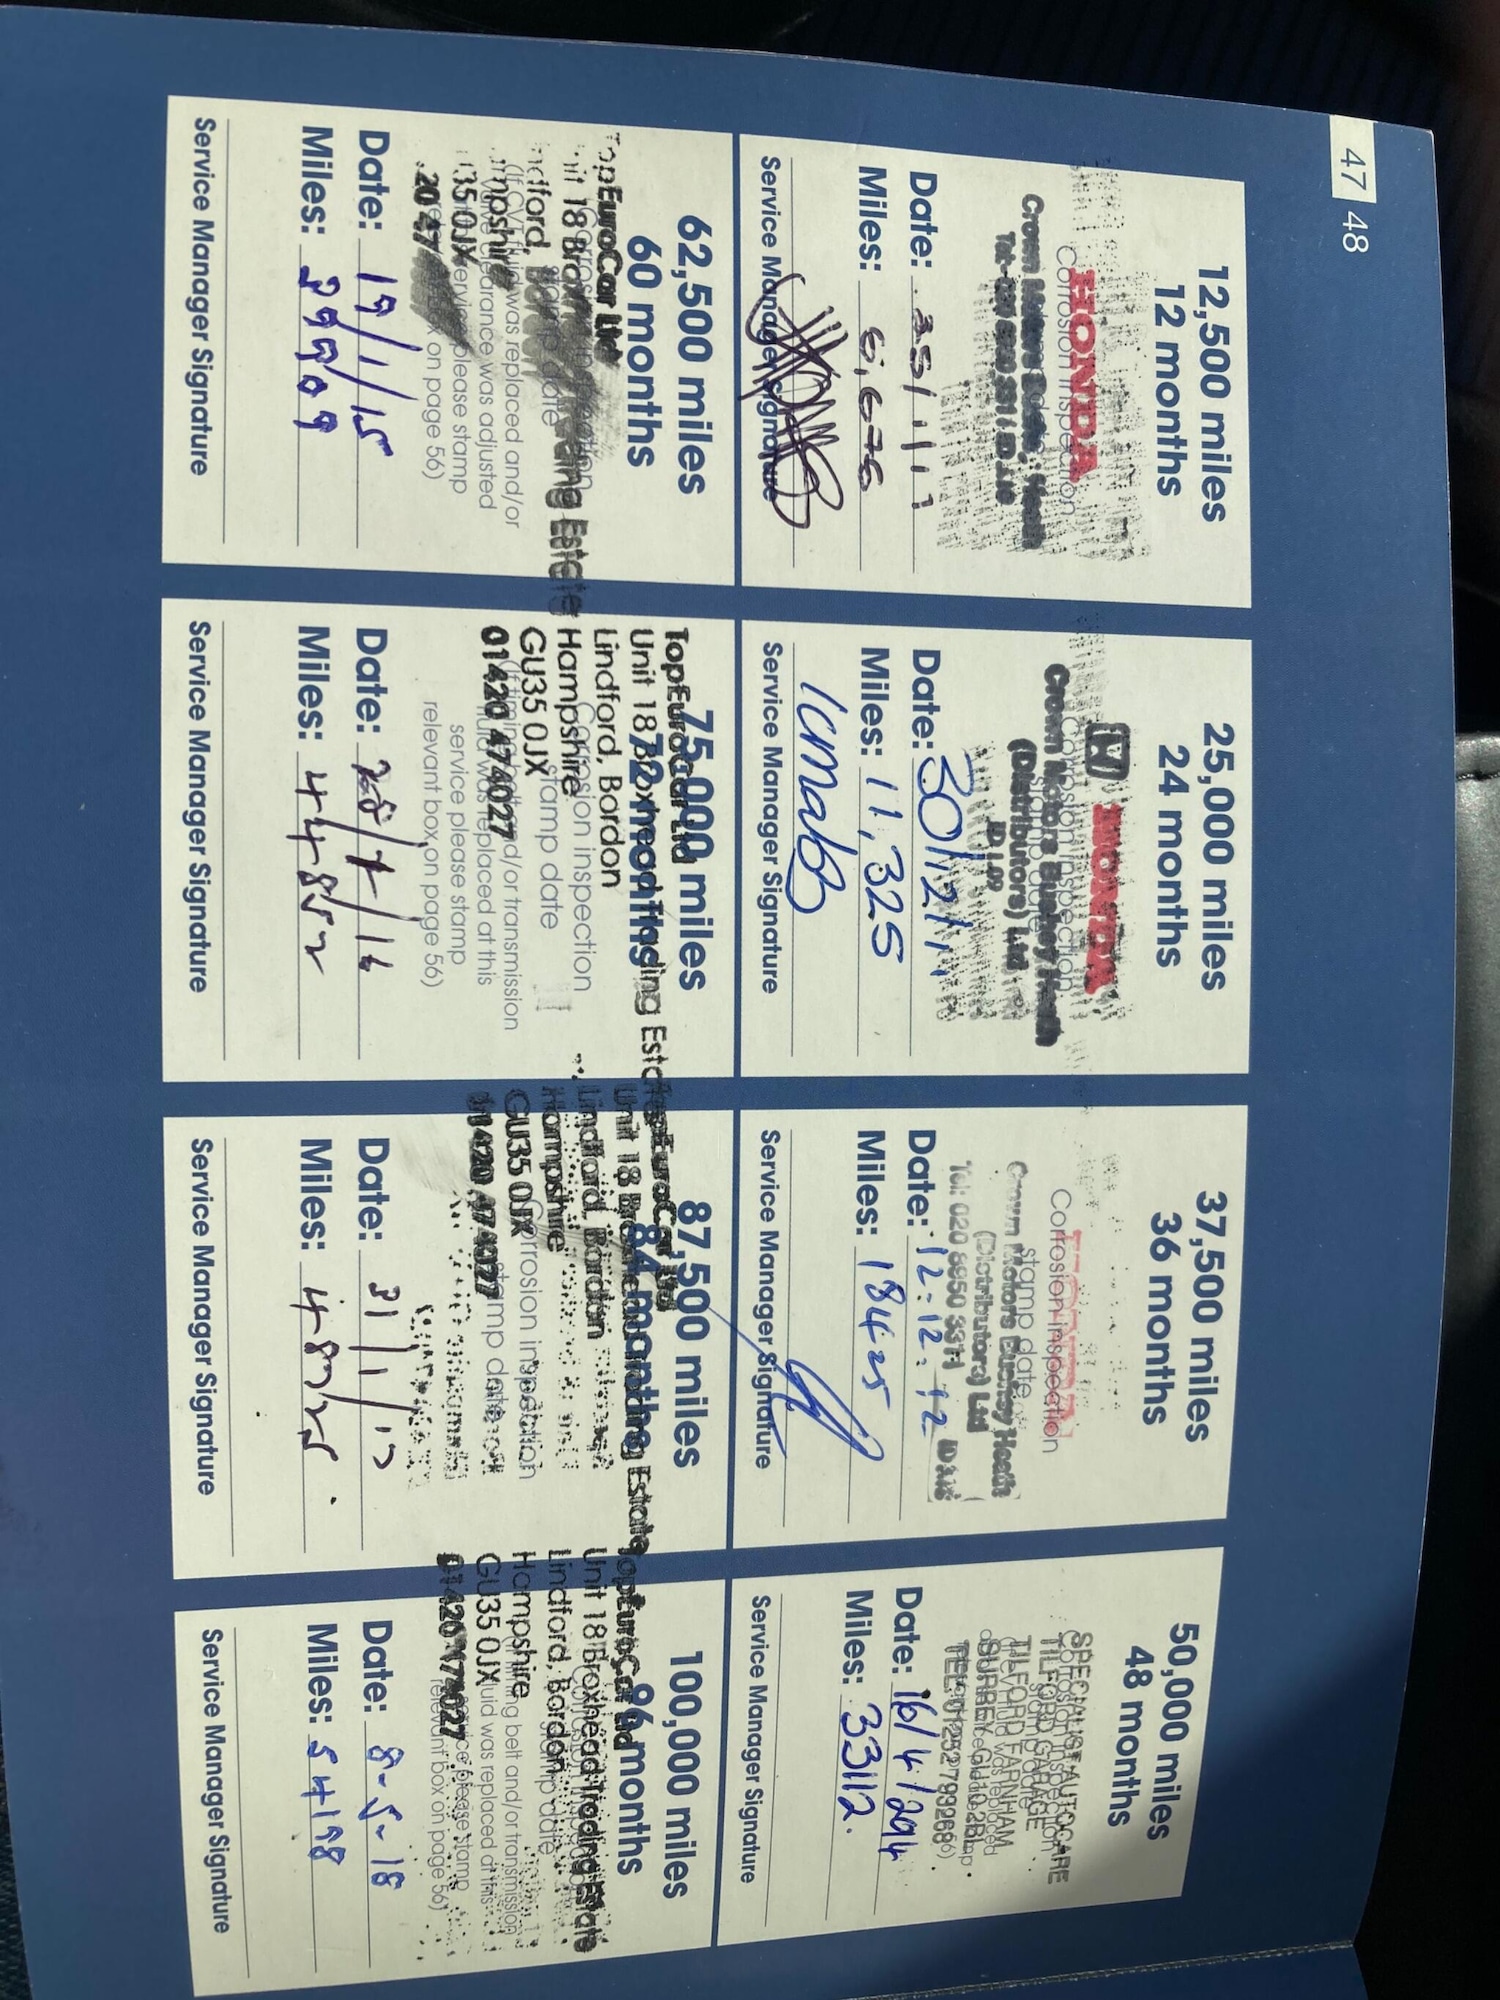 47 48
12,500 miles
12 months
HONDA
Corrosion inspection
Crown Motors Bushey Heath
Date:
Miles: 6,675
Service Manager Signature
25,000 miles
24 months
HONDA
Corrosion inspection
stamp date
Crown Motors Bushey Heath
(Distributors) Ltd
Date: 30/12/11
Miles: 11,325
Service Manager Signature
37,500 miles
36 months
Corrosion inspection
stamp date
Crown Motors Bushey Heath
(Distributors) Ltd
Tel: 020 8950 3311
Date: 12.12.12
Miles: 18425
Service Manager Signature
50,000 miles
48 months
SPECIALIST AUTOCARE
TILFORD GARAGE
TILFORD FARNHAM
SURREY GU10 2BU
TEL:
Date: 16/4/2014
Miles: 33112.
Service Manager Signature
62,500 miles
60 months
TopEuroCar Ltd
Unit 18 Trading Estate
(If CVT fluid was replaced and/or
valve clearance was adjusted
service please stamp
on page 56)
Date: 19/1/15
Miles: 39909
Service Manager Signature
75,000 miles
72 months
TopEuroCar Ltd
Unit 18 Broxhead Trading Estate
Lindford, Bordon
Hampshire
GU35 0JX
01420 474027
Corrosion inspection
stamp date
and/or transmission
fluid was replaced at this
service please stamp
relevant box on page 56)
Date:
Miles: 44852
Service Manager Signature
87,500 miles
84 months
TopEuroCar Ltd
Unit 18 Broxhead Trading Estate
Lindford, Bordon
Hampshire
GU35 0JX
01420 474027
Corrosion inspection
stamp date
Date: 31/1/17
Miles:
Service Manager Signature
100,000 miles
96 months
TopEuroCar Ltd
Unit 18 Broxhead Trading Estate
Lindford, Bordon
Hampshire
GU35 0JX
01420 474027
stamp date
timing belt and/or transmission
fluid was replaced at this
service please stamp
relevant box on page 56)
Date: 8-5-18
Miles: 54198
Service Manager Signature